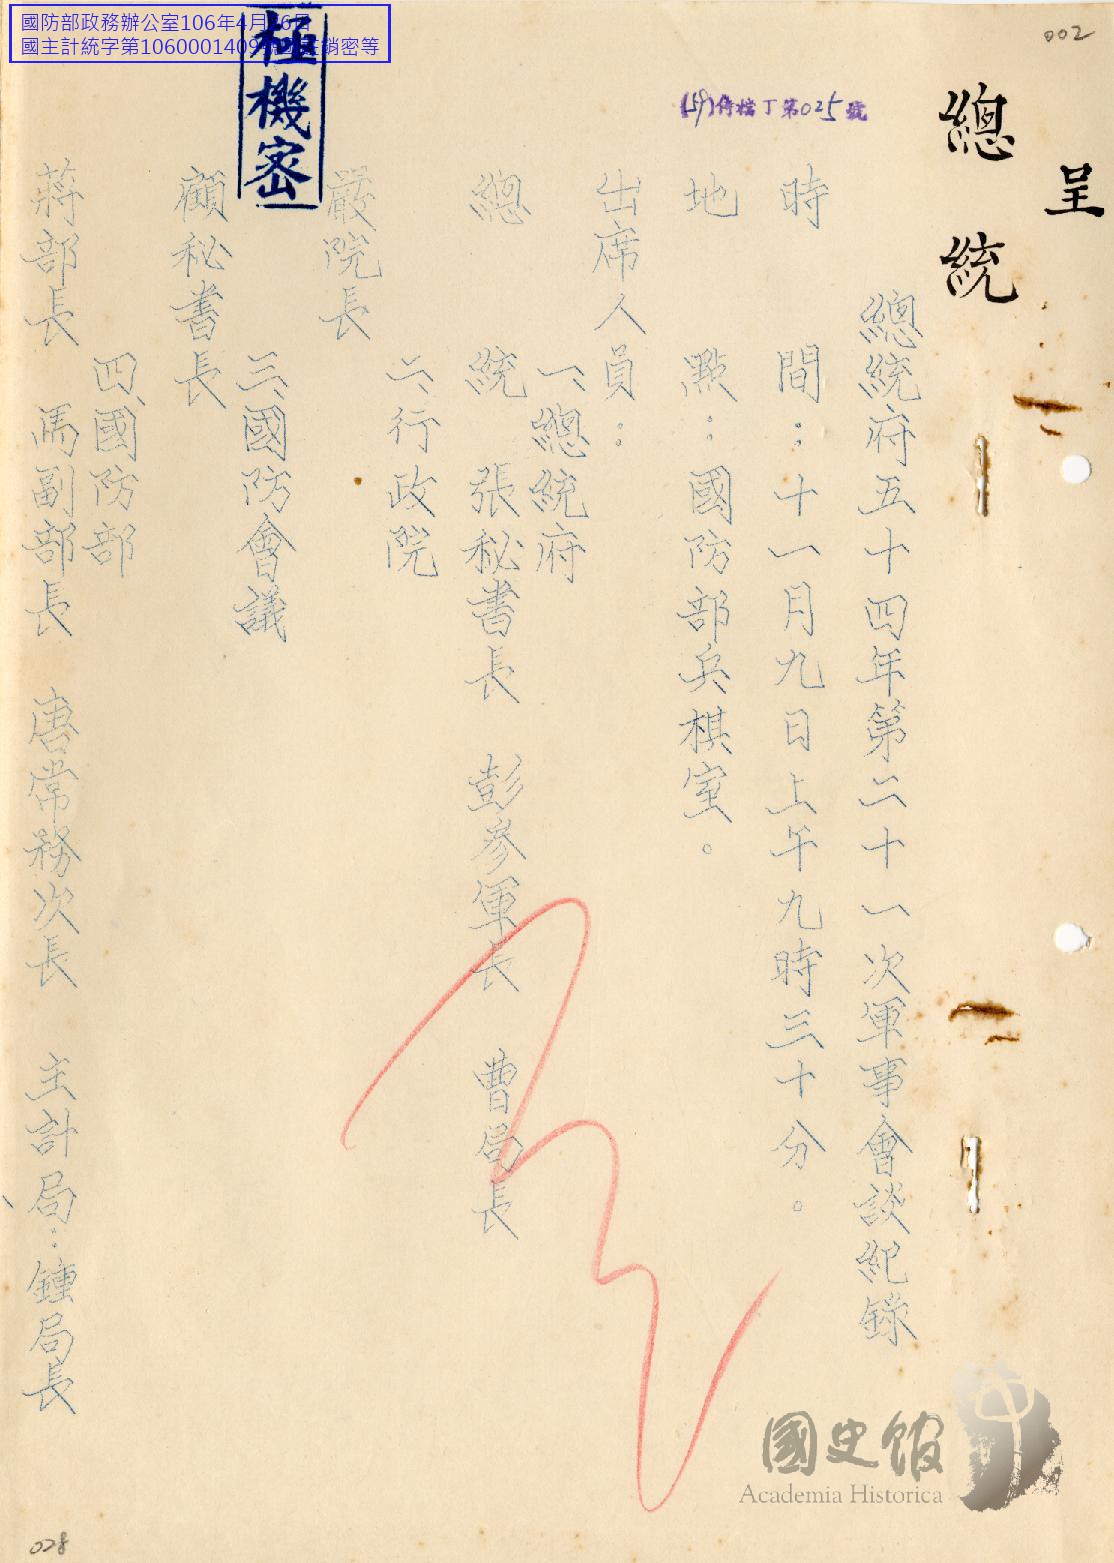 002
呈
總統
總統府五十四年第二十一次軍事會談紀錄
時間：十一月九日上午九時三十分。
地點：國防部兵棋室。
出席人員：
一、總統府
總統 張秘書長 彭參軍長 曹局長
二、行政院
嚴院長
三、國防會議
顧秘書長
四、國防部
蔣部長 馬副部長 唐常務次長 主計局：鍾局長
極機密
國防部政務辦公室106年4月
國主計統字第1060001409 銷密等
檔丁第025號
國史館
Academia Historica
028